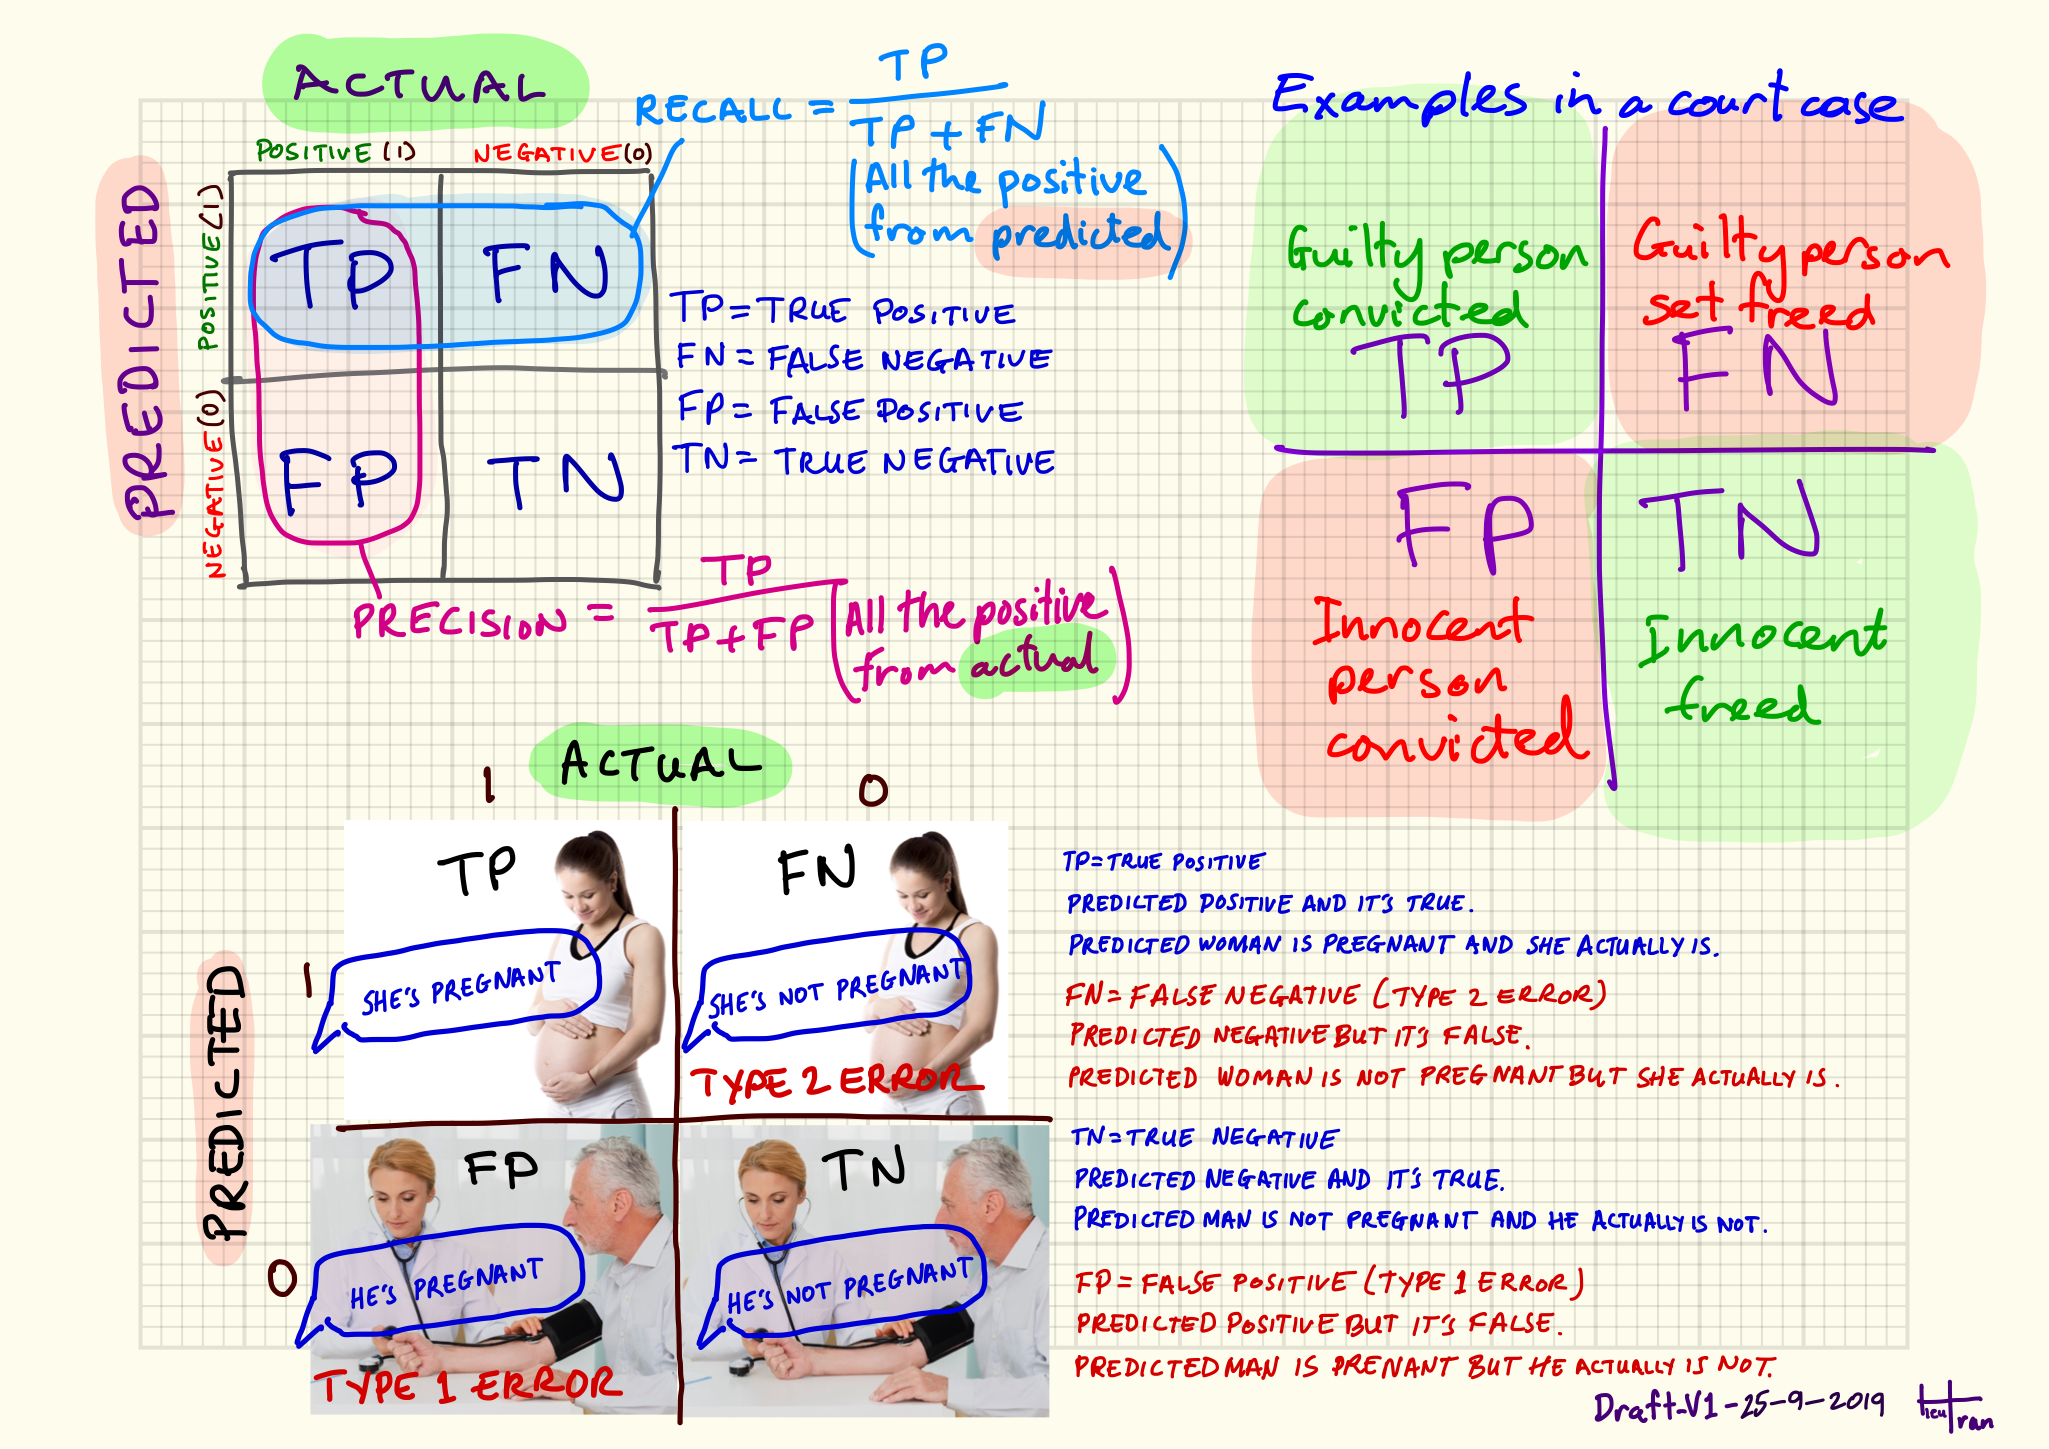 ACTUAL
POSITIVE (1)
NEGATIVE (0)
PREDICTED
POSITIVE (1)
NEGATIVE (0)
TP
FN
FP
TN
RECALL = TP
TP + FN
(All the positive
from predicted)
TP = TRUE POSITIVE
FN = FALSE NEGATIVE
FP = FALSE POSITIVE
TN = TRUE NEGATIVE
PRECISION = TP
TP + FP
(All the positive
from actual)
Examples in a court case
Guilty person
convicted
TP
Guilty person
set freed
FN
FP
Innocent
person
convicted
TN
Innocent
freed
ACTUAL
1
0
PREDICTED
1
0
TP
SHE'S PREGNANT
FN
SHE'S NOT PREGNANT
TYPE 2 ERROR
FP
HE'S PREGNANT
TYPE 1 ERROR
TN
HE'S NOT PREGNANT
TP = TRUE POSITIVE
PREDICTED POSITIVE AND IT'S TRUE.
PREDICTED WOMAN IS PREGNANT AND SHE ACTUALLY IS.
FN = FALSE NEGATIVE (TYPE 2 ERROR)
PREDICTED NEGATIVE BUT IT'S FALSE.
PREDICTED WOMAN IS NOT PREGNANT BUT SHE ACTUALLY IS.
TN = TRUE NEGATIVE
PREDICTED NEGATIVE AND IT'S TRUE.
PREDICTED MAN IS NOT PREGNANT AND HE ACTUALLY IS NOT.
FP = FALSE POSITIVE (TYPE 1 ERROR)
PREDICTED POSITIVE BUT IT'S FALSE.
PREDICTED MAN IS PRENANT BUT HE ACTUALLY IS NOT.
Draft-V1-25-9-2019
Hieu Tran